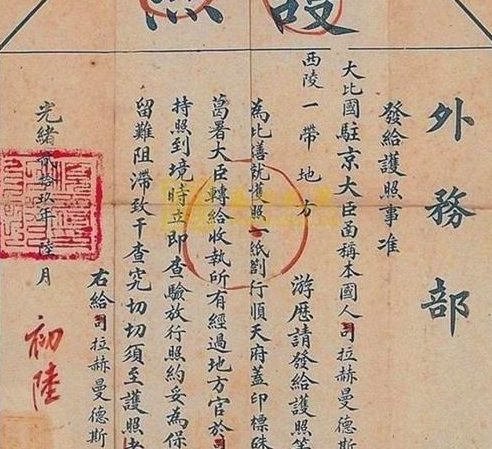 護照
外務部
發給護照事准
大比國駐京大臣函稱本國人司拉赫曼德斯
西陵一帶地方
游歷請發給護照等
為此繕就護照一紙劄行順天府蓋印標硃
葛署大臣轉給收執所有經過地方官於
持照到境時立即查驗放行照約妥為保
留難阻滯致干查究切切須至護照者
右給司拉赫曼德斯
光緒貳拾玖年 陸月
初陸